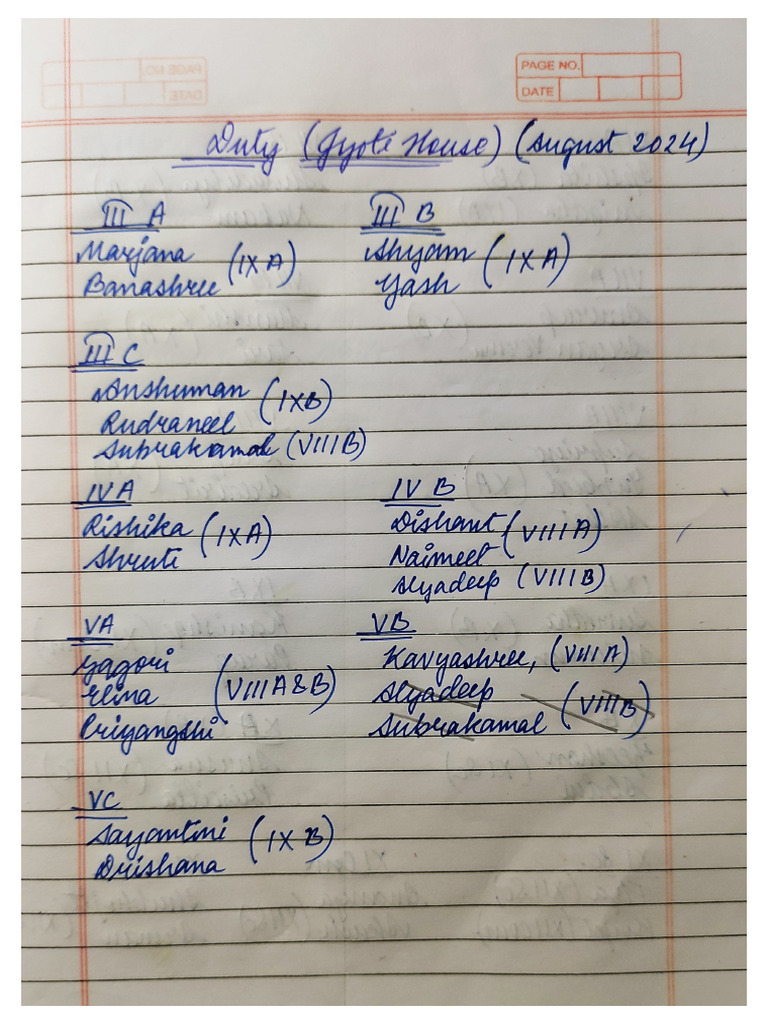 PAGE NO.
DATE
Duty (Jyoti House) (August 2024)
III A
Marjana (IX A)
Banashree
III B
Shyam (IX A)
Yash
III C
Anshuman (IXB)
Rudraneel
Subrakamal (VIII B)
IV A
Rishika (IXA)
Shruti
IV B
Dishant (VIII A)
Naimeet
Slyadeep (VIII B)
VA
Gagori
Elina (VIII A & B)
Priyangshi
VB
Kavyashree, (VIII A)
Slyadeep (VIII B)
Subrakamal
VC
Sayantini (IX B)
Drishana